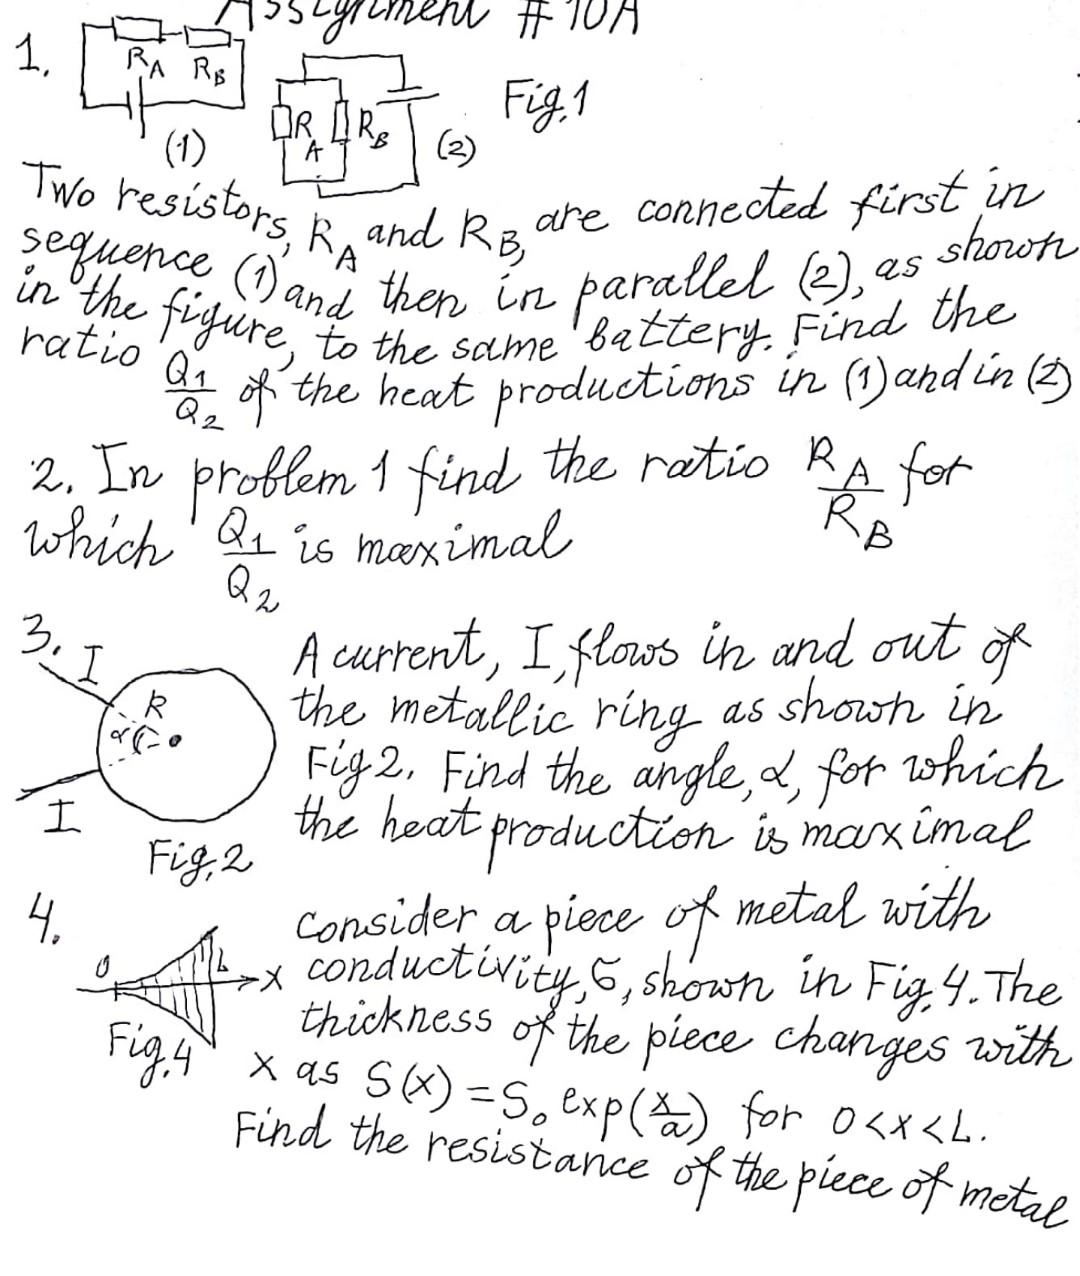 Assignment # 10A
1.
RA RB
(1)
RA RB
(2)
Fig.1
Two resistors, RA and RB, are connected first in
sequence (1) and then in parallel (2), as shown
in the figure, to the same battery. Find the
ratio Q1/Q2 of the heat productions in (1) and in (2)
2. In problem 1 find the ratio RA/RB for
which Q1/Q2 is maximal
3.
I
R
α
I
Fig.2
A current, I, flows in and out of
the metallic ring as shown in
Fig 2. Find the angle, α, for which
the heat production is maximal
4.
0 L x
Fig.4
Consider a piece of metal with
conductivity, σ, shown in Fig.4. The
thickness of the piece changes with
x as S(x) = S₀ exp(x/a) for 0<x<L.
Find the resistance of the piece of metal